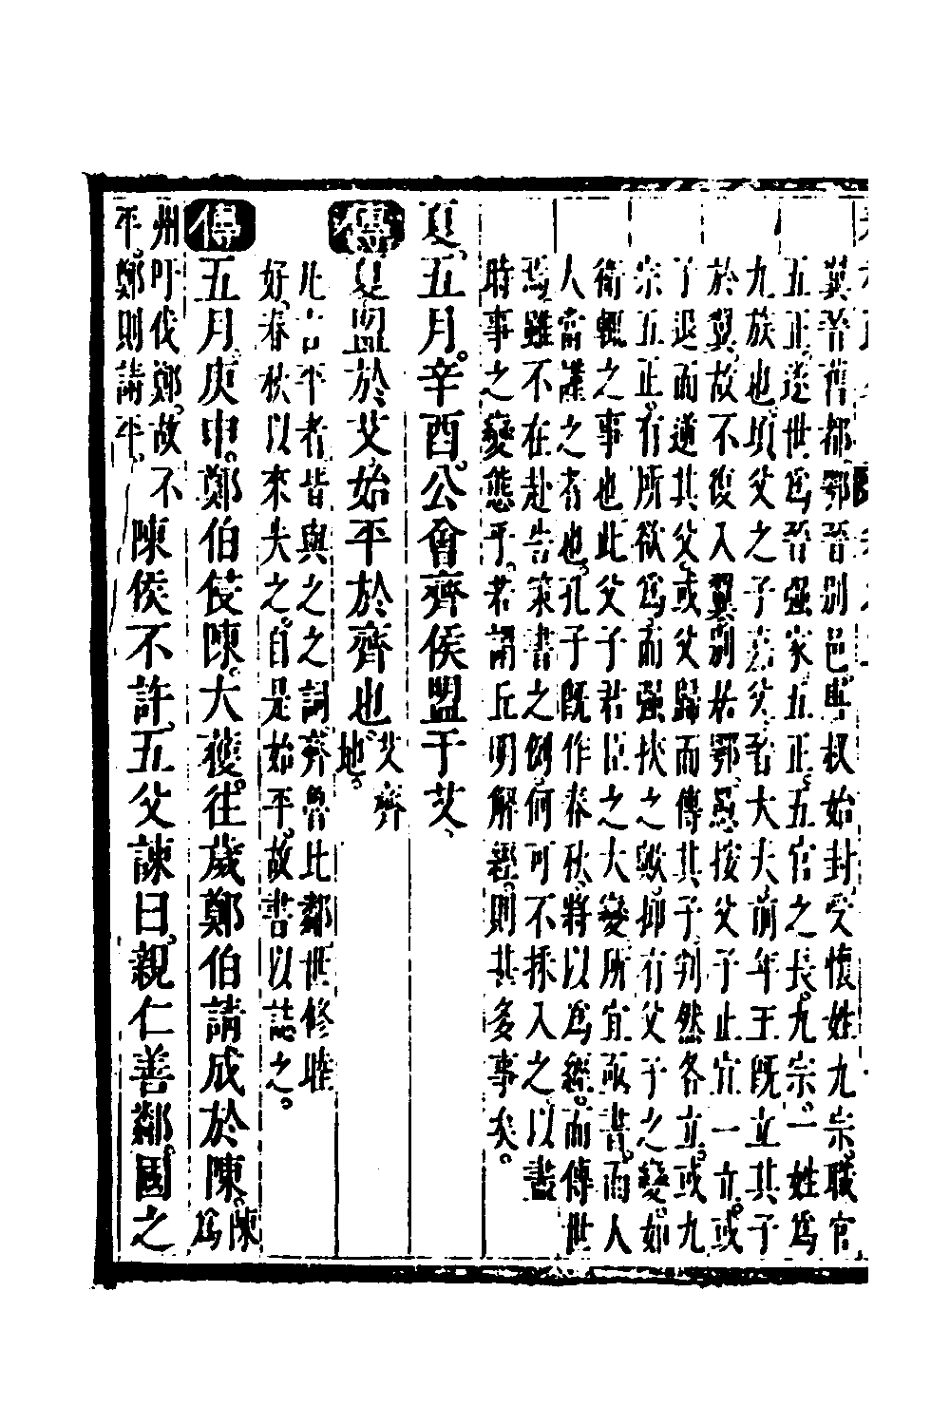 翼晉舊都鄂晉別邑與叔始封受懷姓九宗職官
五正遂世爲晉强家五正五官之長九宗一姓爲
九族也頃父之子嘉父晉大夫前年王既立其子
於翼故不復入翼別居鄂愚按父子止宜一立或
子退而適其父或父歸而傳其子判然各立或九
宗五正有所欲爲而强挾之歟抑有父子之變如
衛輒之事也此父子君臣之大變所宜取書而人
人當謹之者也孔子既作春秋將以爲經而傳世
焉雖不在赴告策書之例何可不採入之以盡
時事之變態乎若謂丘明解經則其多事矣
夏五月辛酉公會齊侯盟于艾
傳夏盟於艾始平於齊也艾齊
地
此言平者皆與之之詞齊魯比鄰世修睢
好春秋以來失之自是始平故書以誌之
傳五月庚申鄭伯侵陳大獲往歲鄭伯請成於陳陳
爲
州吁伐鄭故不
平鄭則請平
陳侯不許五父諫曰親仁善鄰國之